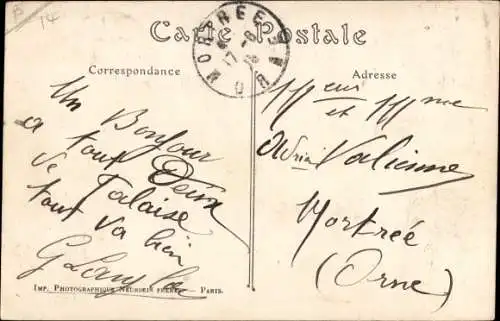 B
14
Carte Postale
MORTRÉE
17-8
ORNE
Correspondance
Adresse
Un Bonjour
a tous Deux
de Falaise
tout va bien
Mr et Mme
Adrien Valienne
Mortrée
(Orne)
IMP. PHOTOGRAPHIQUE NEURDEIN FRÈRES PARIS.